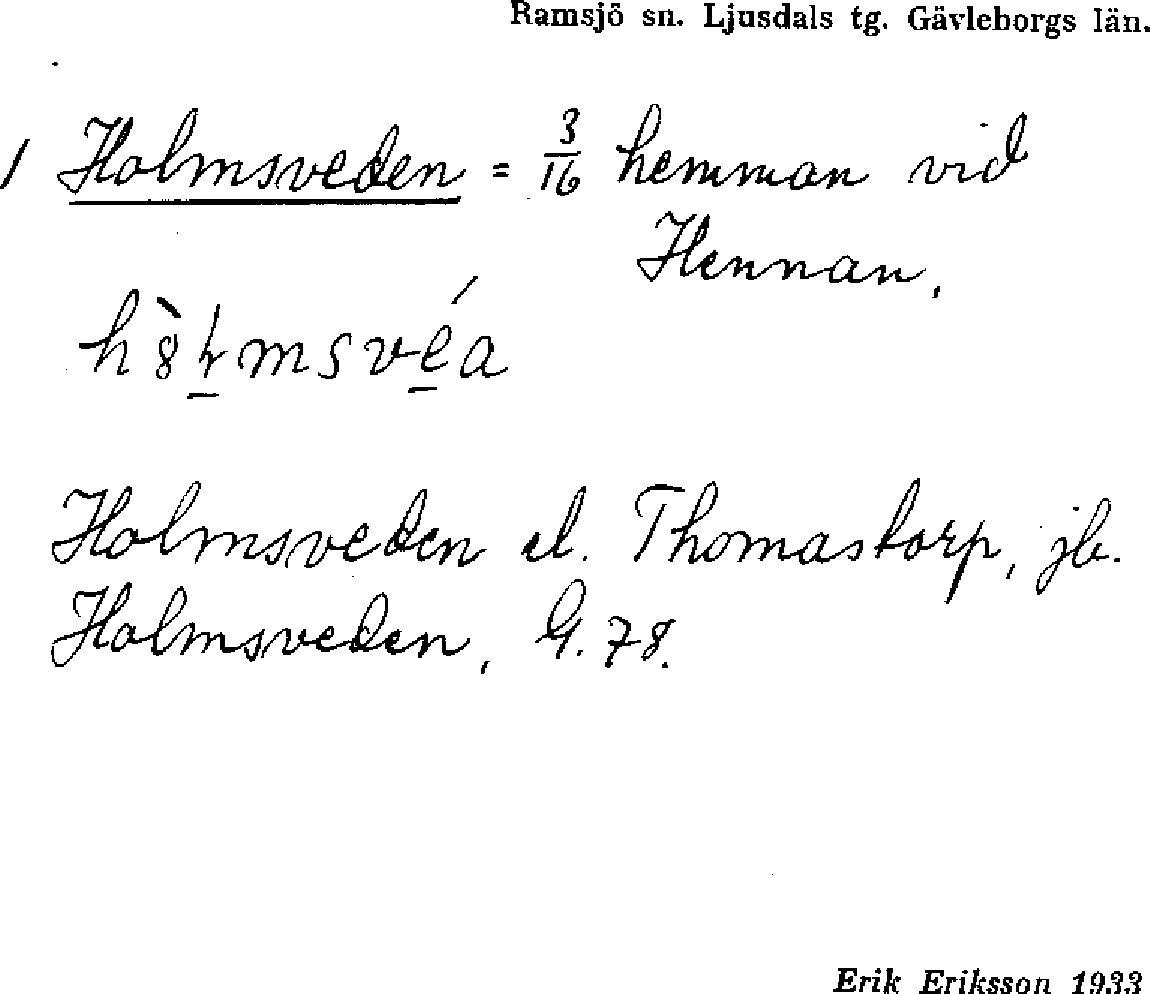 Ramsjö sn. Ljusdals tg. Gävleborgs län.
1 Holmsveden = 3/16 hemman vid
Hennan.
Holmsveden el. Thomastorp, jb.
Holmsveden, G. 78.
Erik Eriksson 1933